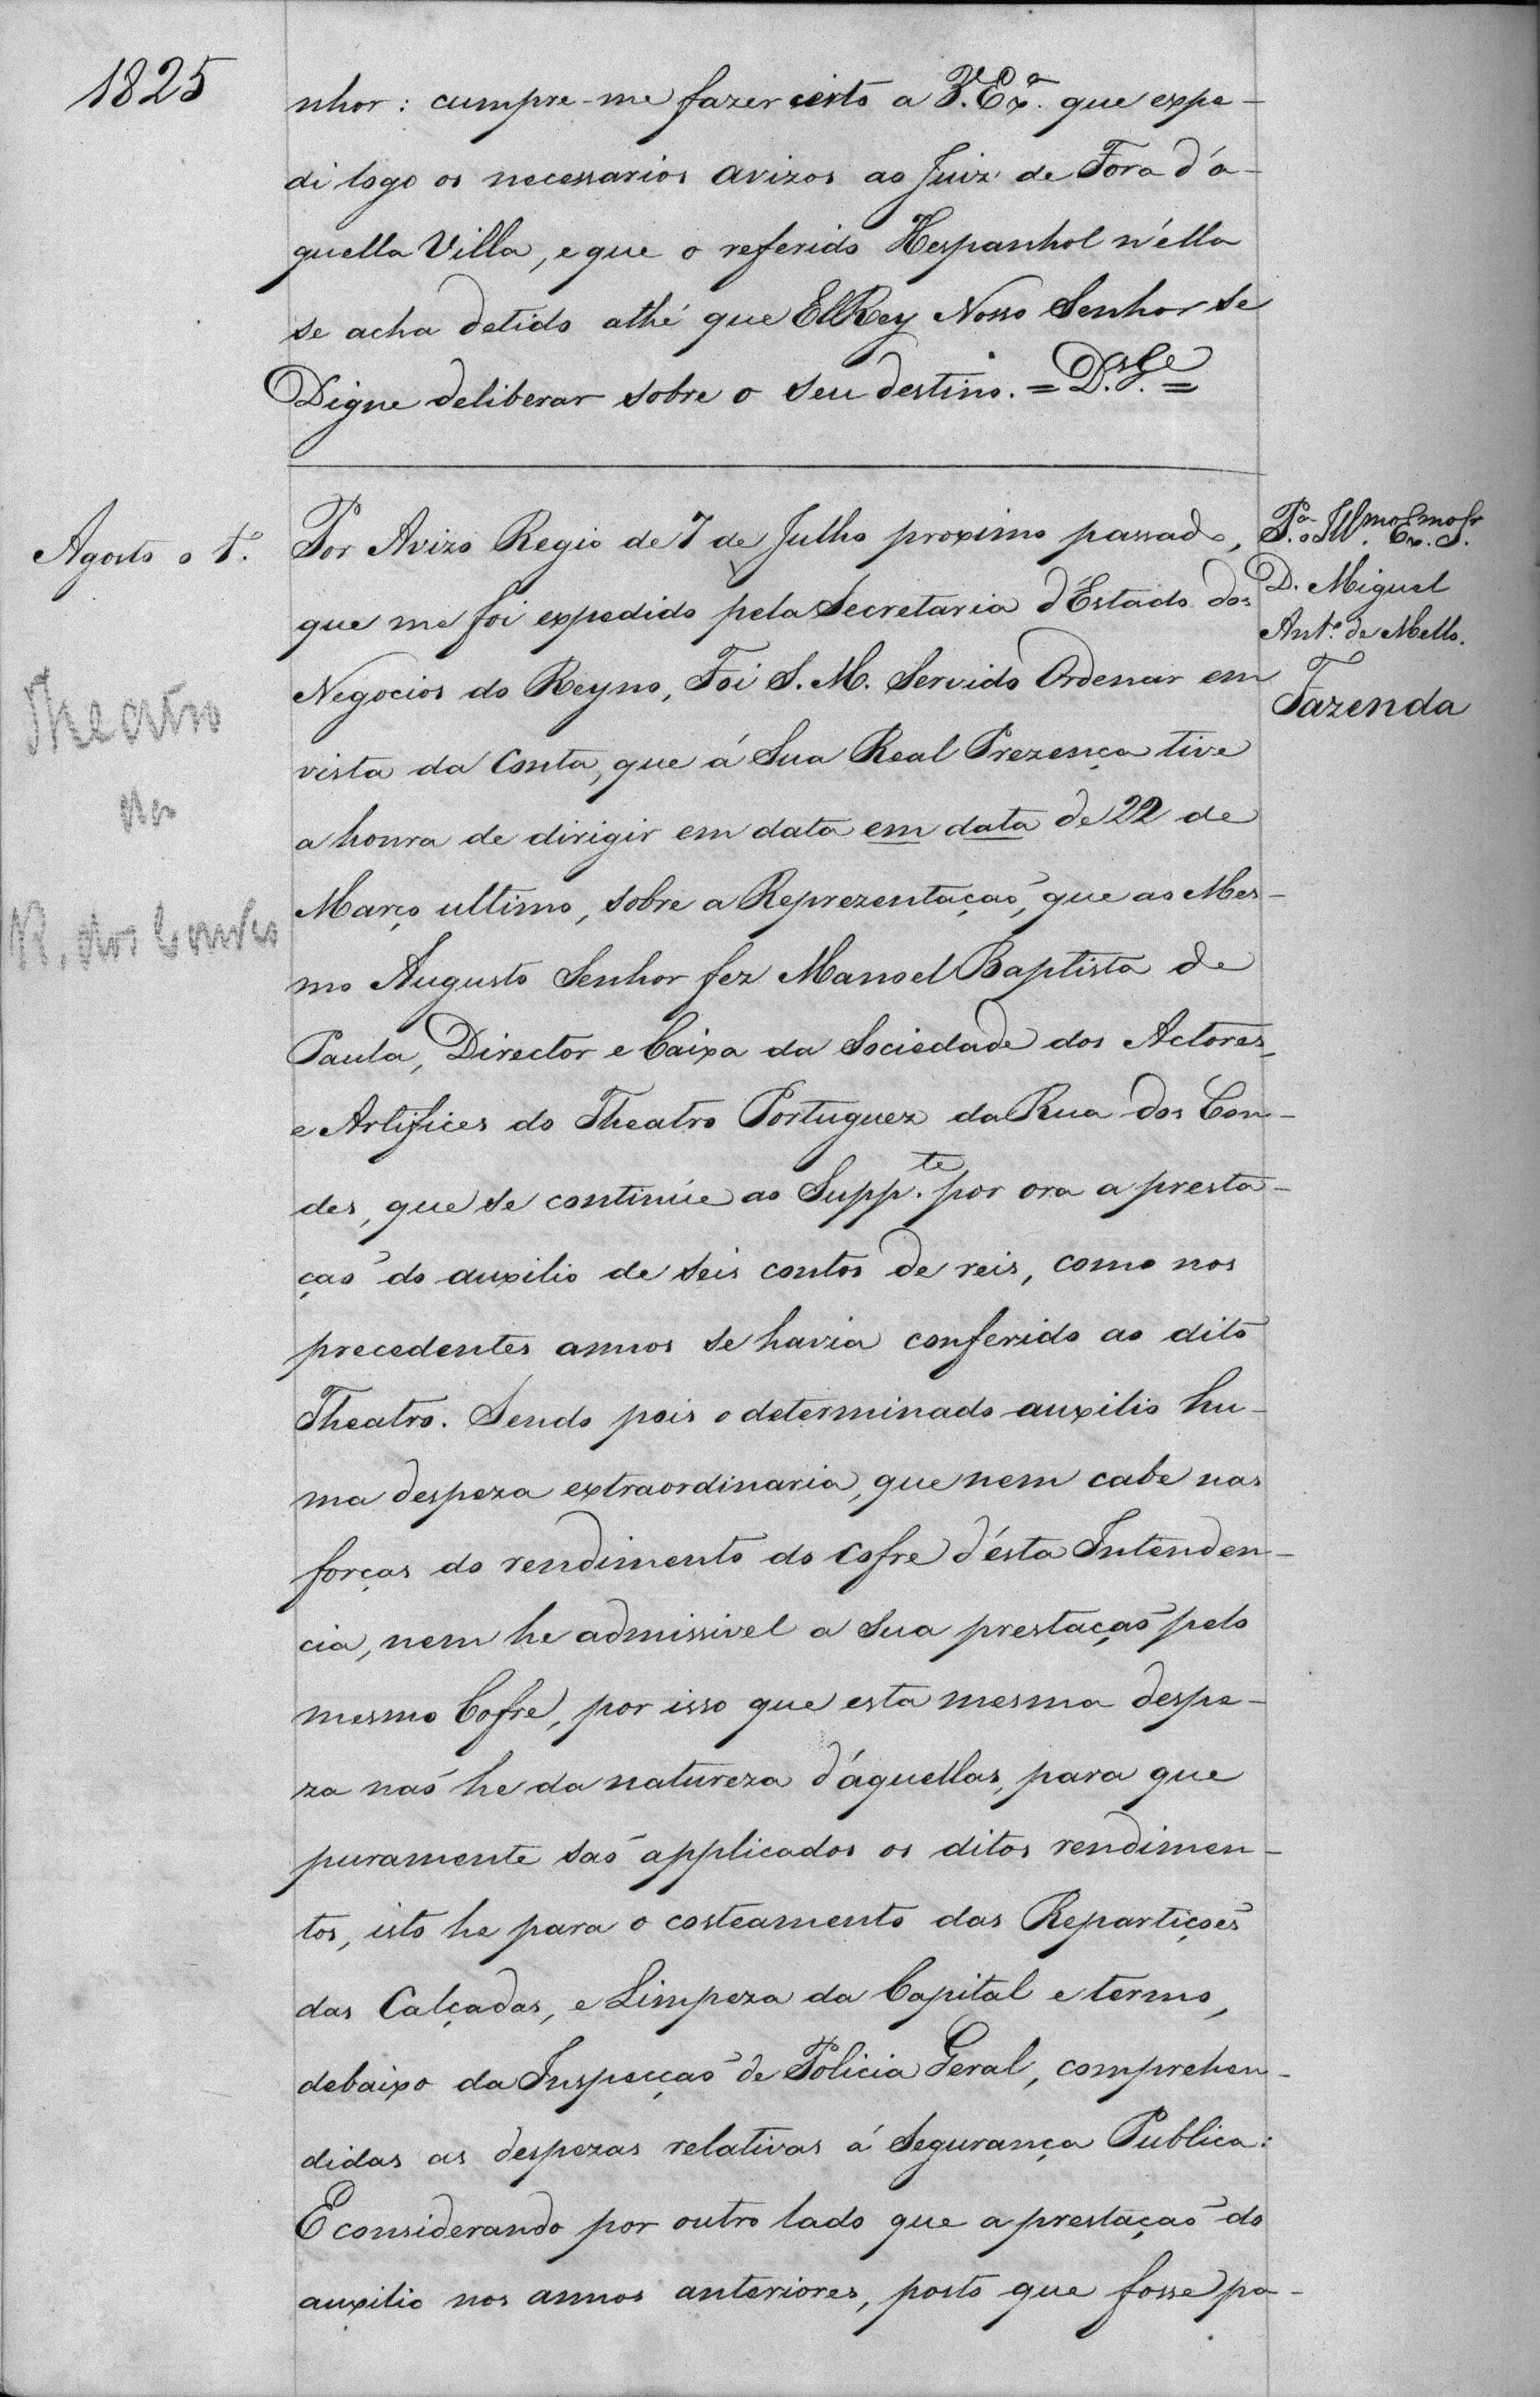 1825
nhor: cumpre-me fazer certo a V. Exª. que expe-
di logo os necessarios avizos ao Juiz de Fora d'a-
quella Villa, e que o referido Hespanhol n'élla
se acha detido athé que ElRey Nosso Senhor se
Digne deliberar sobre o seu destino. = D.s G.e =
Agosto o 1º.
Por Avizo Regio de 7 de Julho proximo passado,
que me foi expedido pela Secretaria d'Estado dos
Negocios do Reyno, Foi S. M. Servido Ordenar em
vista da Conta, que á Sua Real Prezença tive
a honra de dirigir em data em data de 22 de
Março ultimo, sobre a Reprezentação, que ao Mes-
mo Augusto Senhor fez Manoel Baptista de
Paula, Director e Caixa da Sociedade dos Actores,
e Artifices do Theatro Portuguez da Rua dos Con-
des, que se continúe ao Supp.te por ora a presta-
ção do auxilio de seis contos de reis, como nos
precedentes annos se havia conferido ao dito
Theatro. Sendo pois o determinado auxilio hu-
ma despeza extraordinaria, que nem cabe nas
forças do rendimento do Cofre d'ésta Intenden-
cia, nem he admissivel a sua prestação pelo
mesmo Cofre, por isso que esta mesma despe-
za não he da natureza d'áquellas, para que
puramente são applicados os ditos rendimen-
tos, isto he para o costeamento das Repartições
das Calçadas, e Limpeza da Capital e termo,
debaixo da Inspecção de Policia Geral, comprehen-
didas as despezas relativas á Segurança Publica:
E considerando por outro lado que a prestação do
auxilio nos annos anteriores, posto que fosse pa-
Pª. o Ill.mo Ex.mo Sr.
D. Miguel
Ant.º de Mello.
Fazenda
Theatro
da
R. dos Condes